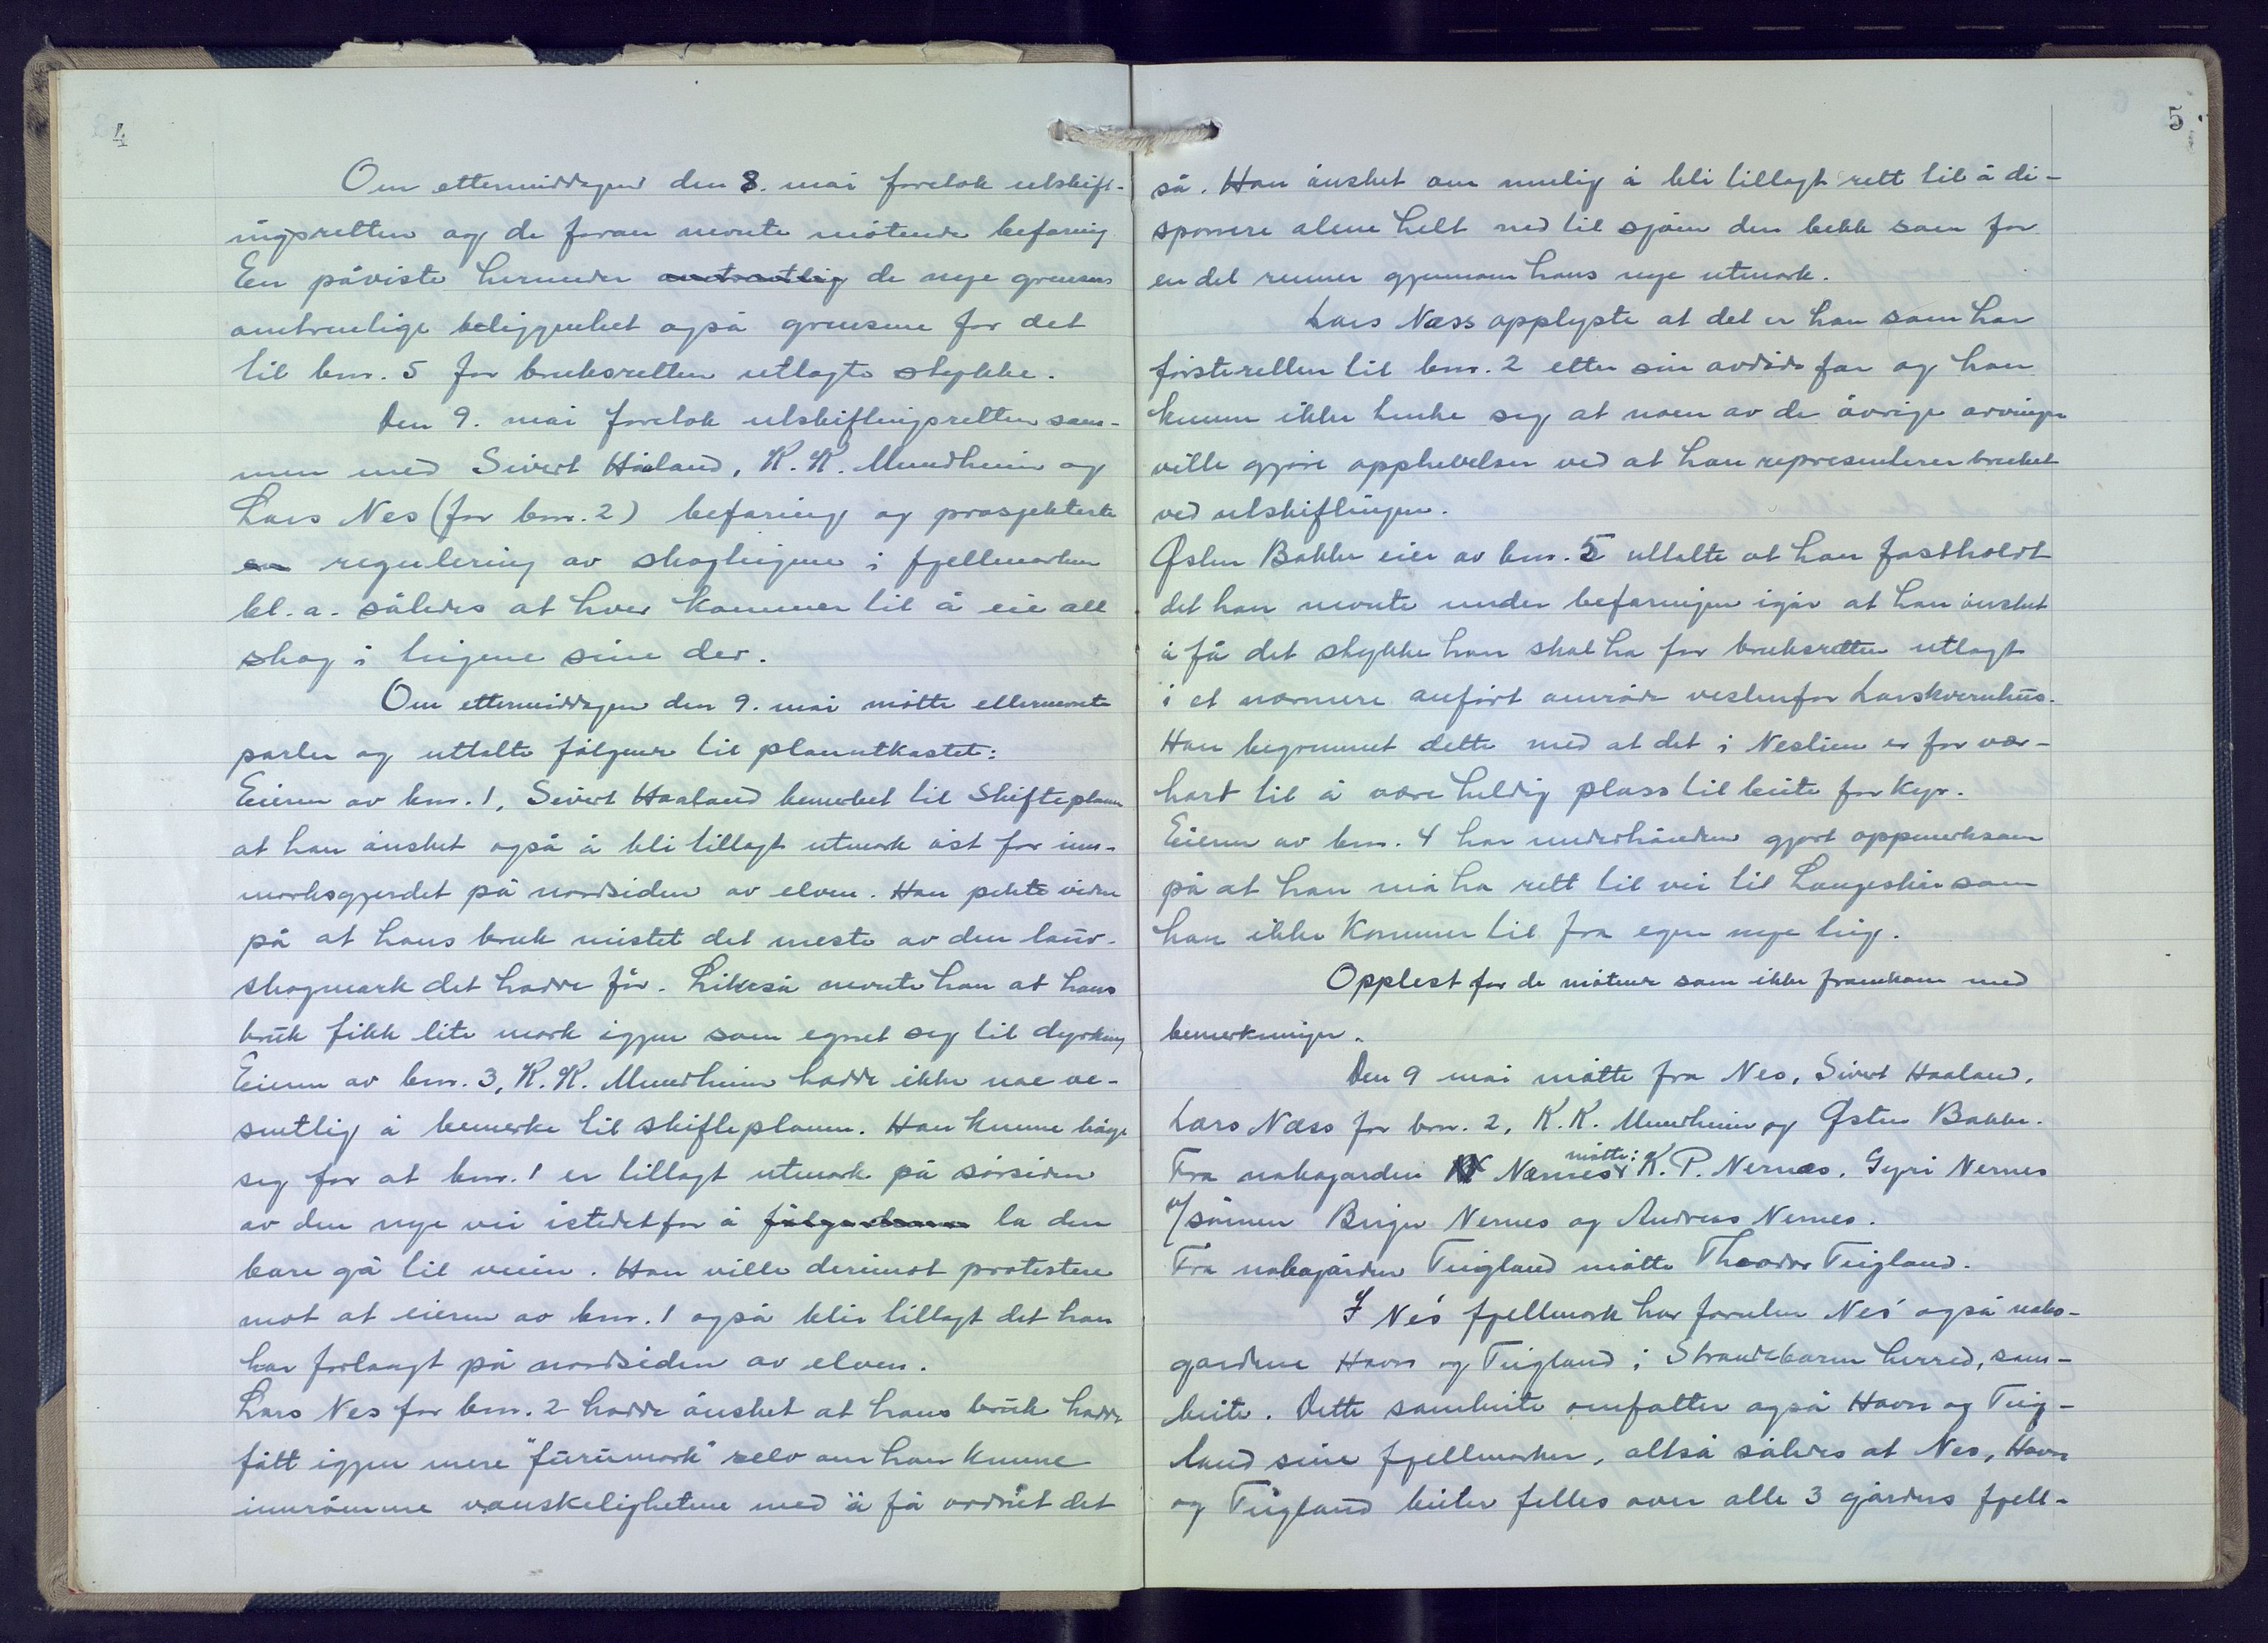 4
Om ettermiddagen den 8. mai foretok utskift-
ningsretten og de foran nevnte møtende befaring
En påviste herunder de nye grensers
omtrentlige beliggenhet også grensene for det
til bnr. 5 for bruksretten utlagte stykke.
Den 9. mai foretok utskiftingsretten sam-
men med Sivert Håland, K. K. Mundheim og
Lars Nes (for bnr. 2) befaring og prosjekterte
en regulering av skogteigene i fjellmarken
bl. a. således at hver kommer til å eie all
skog i teigene sine der.
Om ettermiddagen den 9. mai møtte etternevnte
parter og uttalte følgende til planutkastet:
Eieren av bnr. 1, Sivert Haaland bemerket til skifteplanen
at han ønsket også å bli tillagt utmark øst for inn-
marksgjerdet på nordsiden av elven. Han pekte videre
på at hans bruk mistet det meste av den lauv-
skogmark det hadde før. Likeså nevnte han at hans
bruk fikk lite mark igjen som egnet seg til dyrking
Eieren av bnr. 3, K. K. Mundheim hadde ikke noe ve-
sentlig å bemerke til skifteplanen. Han kunne bøye
seg for at bnr. 1 er tillagt utmark på sørsiden
av den nye vei istedetfor å la den
bare gå til veien. Han ville derimot protestere
mot at eieren av bnr. 1 også blir tillagt det han
har forlangt på nordsiden av elven.
Lars Nes for bnr. 2 hadde ønsket at hans bruk hadde
fått igjen mere "furumark" selv om han kunne
innrømme vanskelighetene med å få ordnet det
5
så. Han ønsket om mulig å bli tillagt rett til å di-
sponere alene helt ned til sjøen den bekk som for
en del renner gjennom hans nye utmark.
Lars Næss opplyste at det er han som har
førsteretten til bnr. 2 etter sin avdøde far og han
kunne ikke tenke seg at noen av de øvrige arvinger
ville gjøre opphevelser ved at han representerer bruket
ved utskiftingen.
Østen Bakke eier av bnr. 5 uttalte at han fastholdt
det han nevnte under befaringen igår at han ønsket
å få det stykke han skal ha for bruksretten utlagt
i et nærmere anført område vestenfor Larskvernhus.
Han begrunnet dette med at det i Neslien er for vær-
hart til å være heldig plass til beite for kyr.
Eieren av bnr. 4 har underhånden gjort oppmerksom
på at han må ha rett til vei til Langeskår som
han ikke kommer til fra egen nye teig.
Opplest for de møtende som ikke framkom med
bemerkninger.
Den 9 mai møtte fra Nes, Sivert Haaland,
Lars Næss for bnr. 2, K. K. Mundheim og Østen Bakke.
Fra nabogarden Nernes møtte: K. P. Nernes, Gyri Nernes
v/sønnen Birger Nernes og Andreas Nernes.
Fra nabogarden Teigland møtte Theodor Teigland.
I Nes' fjellmark har foruten Nes' også nabo-
gardene Havn og Teigland i Strandebarm herred, sam-
beite. Dette sambeite omfatter også Havn og Teig-
land sine fjellmarker, altså således at Nes, Havn
og Teigland beiter felles over alle 3 gårders fjell-